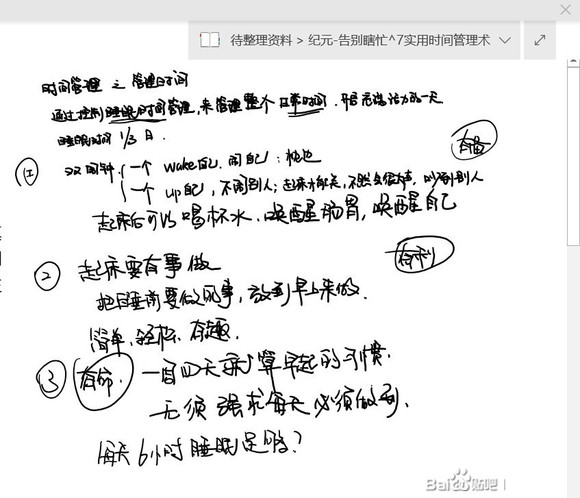 待整理资料 > 纪元-告别瞎忙^7实用时间管理术
时间管理 之 管理时间
通过控制睡眠时间管理,来管理整个日常时间.开启充满活力的一天
睡眠时间 1/3 日.
有备
① 双闹钟 一个 wake自己.闹自己:
一个 up自己,不闹别人;起来才能关,不然会很大声,吵到别人
起床后可以喝杯水.唤醒肠胃,唤醒自己
有利
② 起床要有事做
把睡前要做的事,放到早上来做.
简单.轻松.有趣.
③ 有命. 一周四天就算早起的习惯.
无须强求每天必须做到.
每天6小时睡眠足够?
Bai贴吧